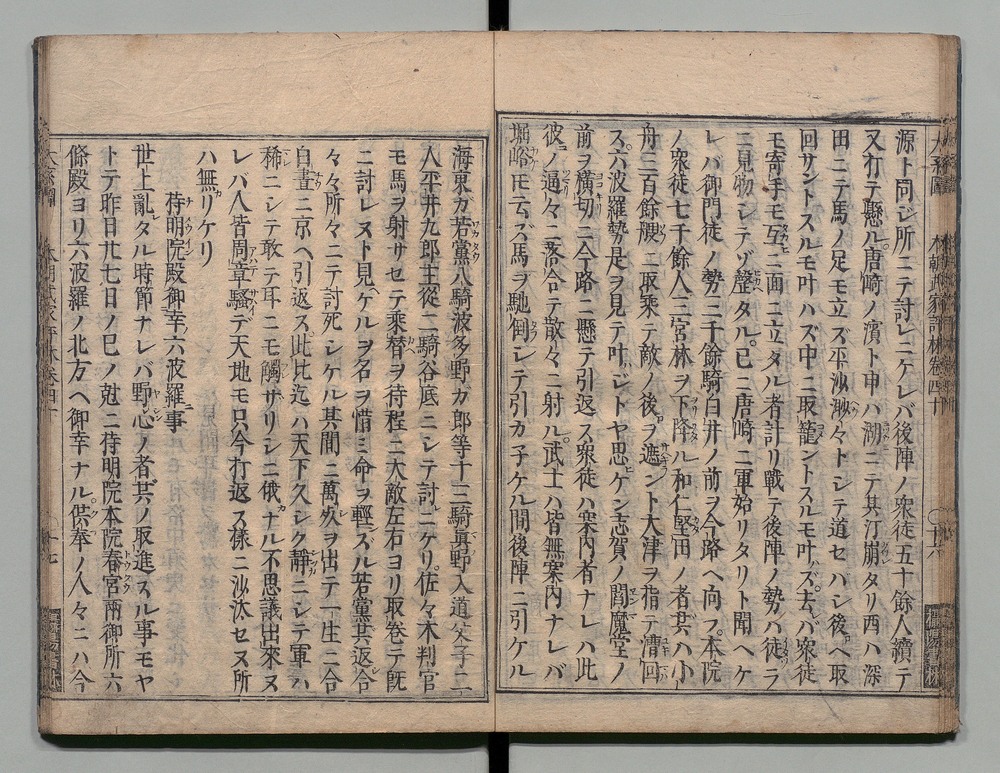 源ト同ジ所ニテ討レニケレバ後陣ノ衆徒五十餘人續テ
又打テ懸ル唐﨑ノ濱ト申ハ湖ニテ其汀崩タリ西ハ深
田ニテ馬ノ足モ立ズ平沙渺々トシテ道セバシ後ヘ取
回サントスルモ叶ハズ中ニ取籠ントスルモ叶ズ去バ衆徒
モ寄手モ互ニ面ニ立タル者計リ戰テ後陣ノ勢ハ徒ラ
ニ見物シテゾ磬タル已ニ唐﨑ニ軍始リタリト聞ヘケ
レバ御門徒ノ勢三千餘騎白井ノ前ヲ今路ヘ向フ本院
ノ衆徒七千餘人三宮林ヲ下降ル和仁堅田ノ者共ハ小
舟三百餘艘ニ取乘テ敵ノ後ヲ遮ント大津ヲ指テ漕回
ス六波羅勢是ヲ見テ叶ジトヤ思ヒケン志賀ノ閻魔堂ノ
前ヲ橫切ニ今路ニ懸テ引返ス衆徒ハ案内者ナレハ此
彼ノ逼々ニ落合テ散々ニ射ル武士ハ皆無案内ナレバ
堀峪トモ云ズ馬ヲ馳倒シテ引カ子ケル間後陣ニ引ケル
海東カ若黨八騎波多野カ郎等十三騎眞野入道父子二
人平井九郎主從二騎谷底ニシテ討ニケリ佐々木判官
モ馬ヲ射サセテ乘替ヲ待程ニ大敵左右ヨリ取卷テ旣
ニ討レヌト見ケルヲ名ヲ惜ミ命ヲ輕ズル若黨共返合
々々所々ニテ討死シケル其間ニ萬死ヲ出テ一生ニ合
白晝ニ京ヘ引返ス此比迄ハ天下久シク靜ニシテ軍ハ
稀ニシテ敢テ耳ニモ觸サリシニ俄ナル不思議出來ヌ
レバ人皆周章騷デ天地モ只今打返ス樣ニ沙汰セヌ所
ハ無リケリ
持明院殿御幸六波羅事
世上亂タル時節ナレバ野心ノ者共ノ取進スル事モヤ
トテ昨日廿七日ノ巳ノ尅ニ持明院本院春宮兩御所六
條殿ヨリ六波羅ノ北方ヘ御幸ナル供奉ノ人々ニハ今